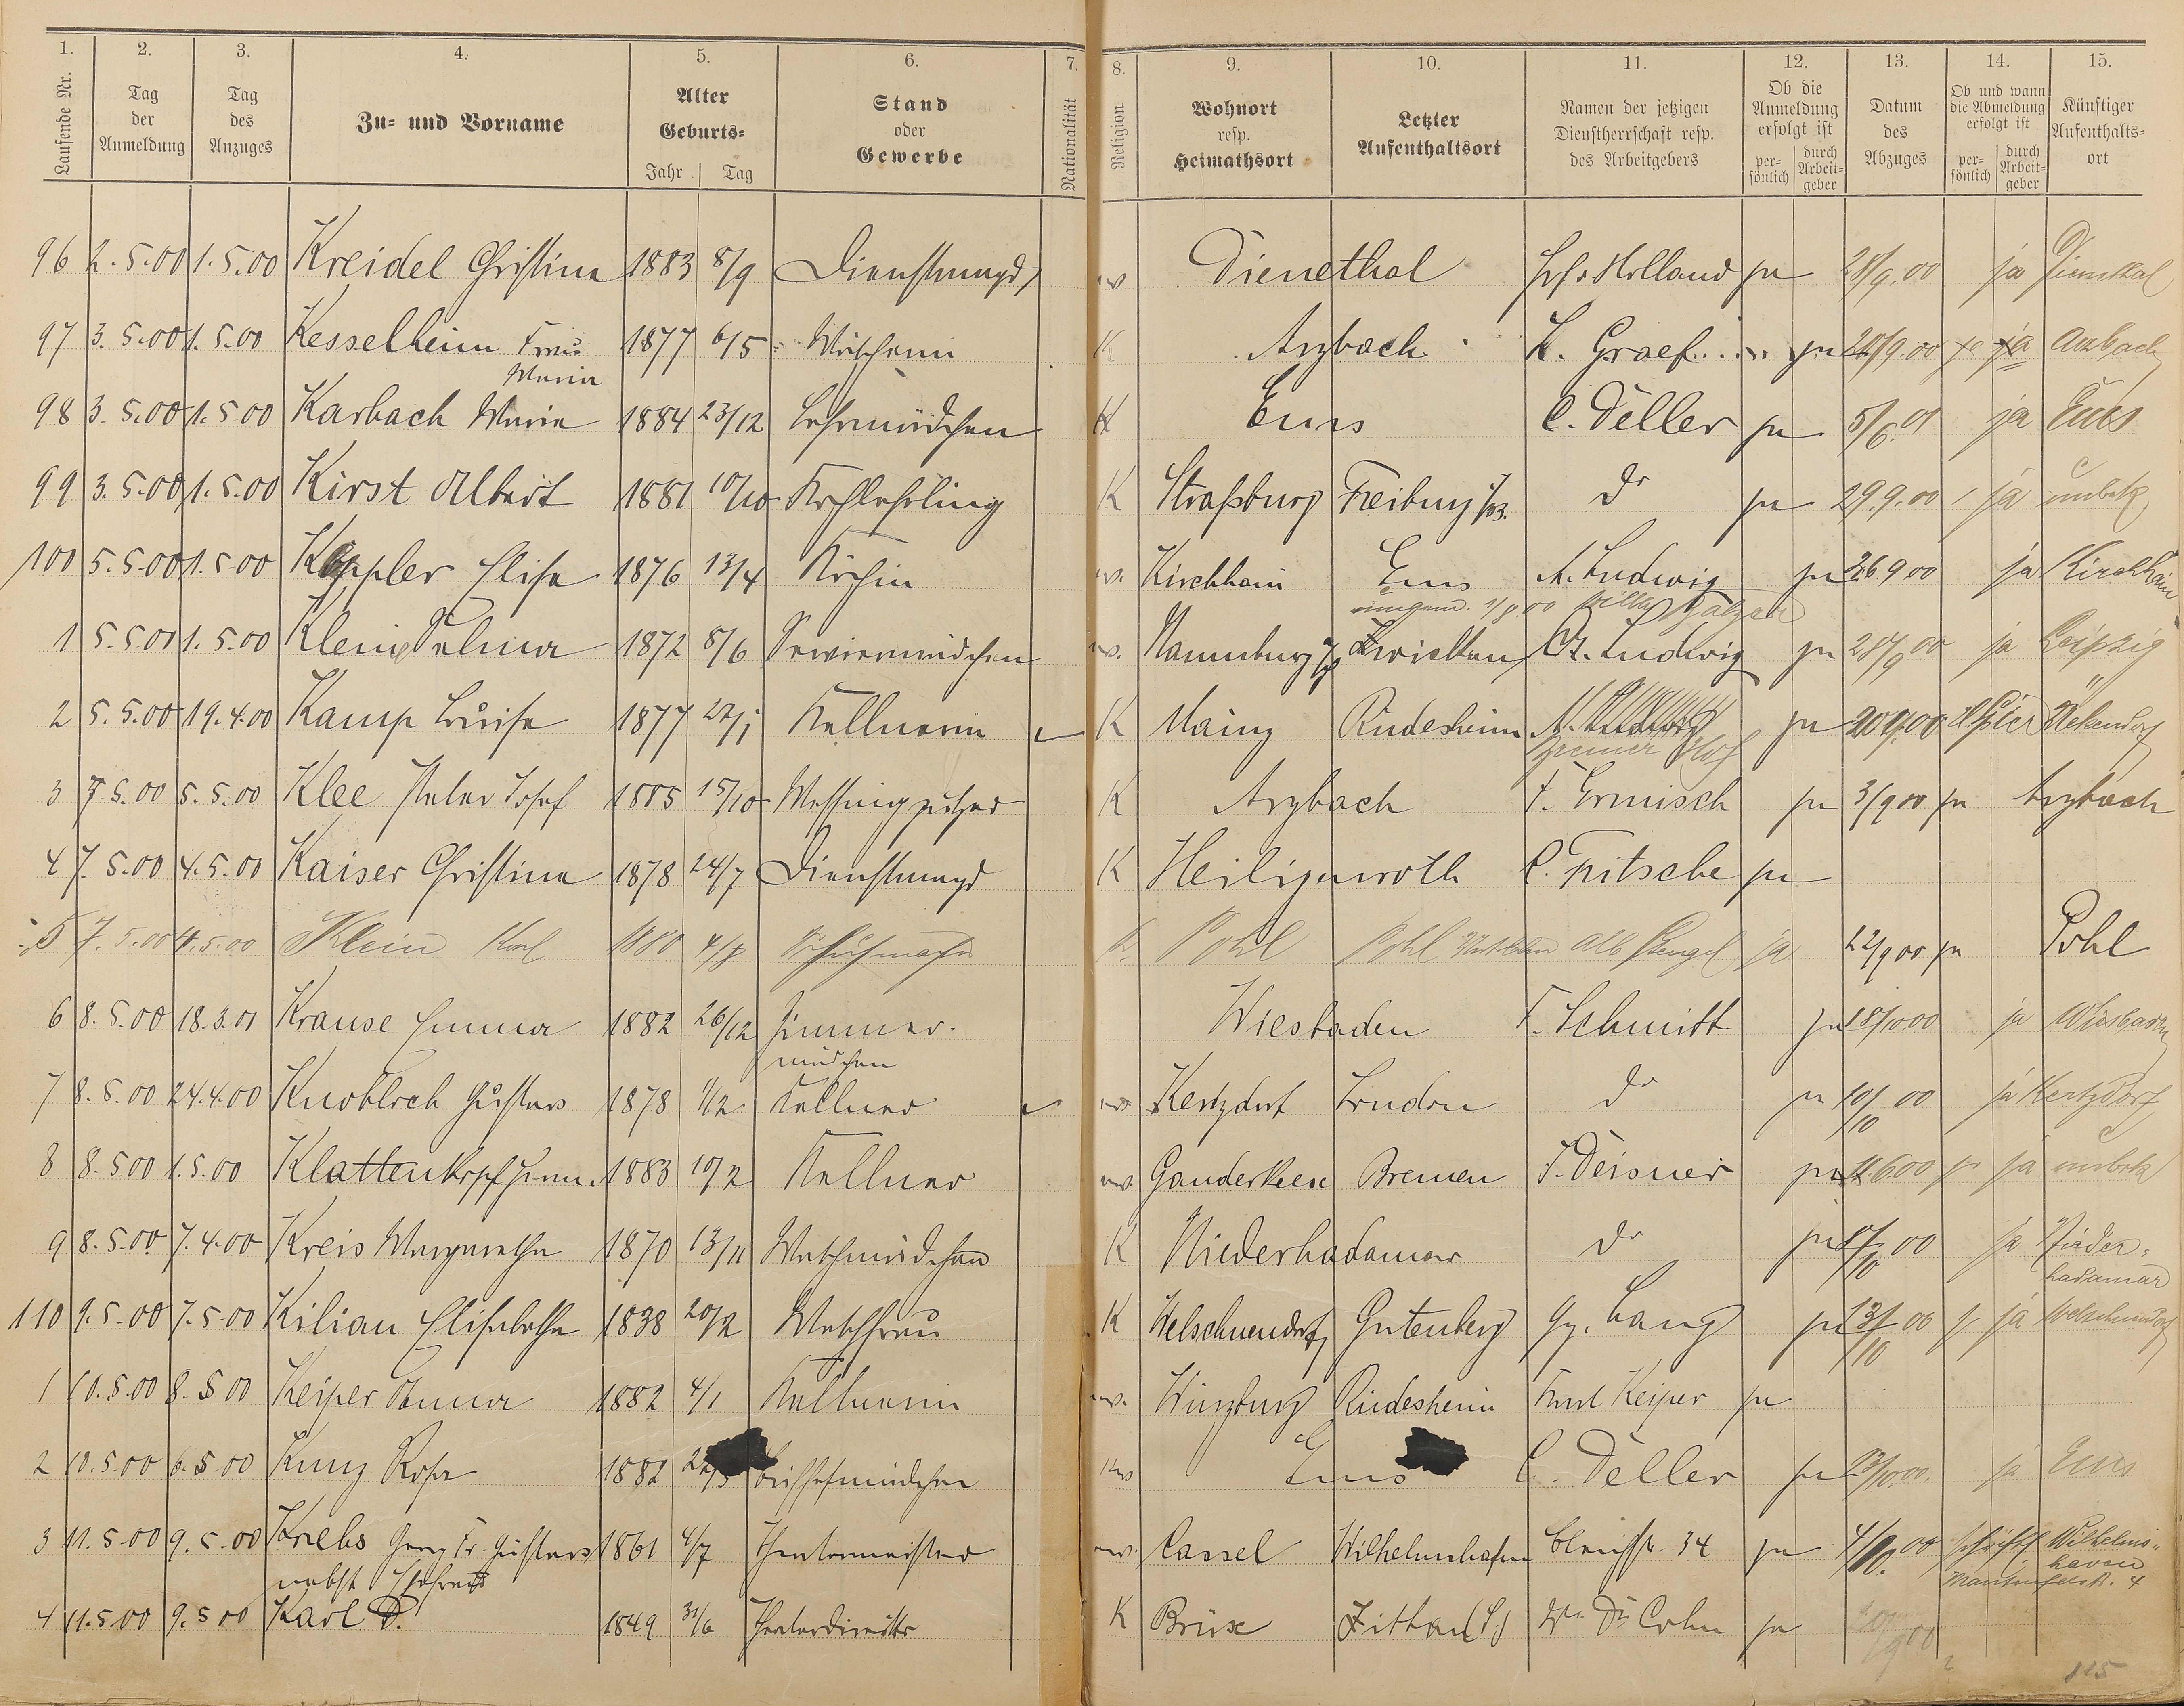 1. 2. 3. 4. 5. 6. 7. 8. 9. 10. 11. 12. 13. 14. 15.
Laufende Nr. Tag der Anmeldung Tag des Anzuges Zu- und Vorname Alter Geburts- Jahr Tag Stand oder Gewerbe Nationalität Religion Wohnort resp. Heimathsort Letzter Aufenthaltsort Namen der jetzigen Dienstherrschaft resp. des Arbeitgebers Ob die Anmeldung erfolgt ist per- sönlich durch Arbeit- geber Datum des Abzuges Ob und wann die Abmeldung erfolgt ist per- sönlich durch Arbeit- geber Künftiger Aufenthalts- ort
96 2.5.00 1.5.00 Kreidel Christina 1883 8/9 Dienstmagd Dienethal Holland ja 28/9.00 ja Dienethal
97 3.5.00 1.5.00 Kesselheim Frau 1877 6/5 Wäscherin K Arzbach K. Graef ja 28/9.00 ja Arzbach
Maria
98 3.5.00 1.5.00 Karbach Maria 1884 23/12 Lehrmädchen K Ems C. Deller ja 5/6.01 ja Ems
99 3.5.00 1.5.00 Kirst Albert 1881 10/10 Kochlehrling K Straßburg Freiburg do ja 29.9.00 ja unbek
100 5.5.00 1.5.00 Keppler Elise 1876 13/4 Köchin ev. Kirchhain Ems A. Ludwig ja 26 9 00 ja Kirchhain
1 5.5.00 1.5.00 Klein Selma 1872 8/6 Serviermädchen ev. Naumburg Zwickau A. Ludwig ja 28/9 00 ja Leipzig
2 5.5.00 19.4.00 Kamp Louise 1877 27/1 Kellnerin K Mainz Rüdesheim ja 20 9.00
Bremer Hof
3 7.5.00 5.5.00 Klee Peter Josef 1885 15/10 Messingputzer K Arzbach F. Ermisch ja 3/9 00 ja Arzbach
4 7.5.00 4.5.00 Kaiser Christina 1878 24/7 Dienstmagd K Heiligenroth C. Fritsche ja
5 7.5.00 4.5.00 Klein Karl 1880 4/8 Schuhmacher K. Pohl Pohl Alb Stengel ja 22/9 00 ja Pohl
6 8.5.00 18.3.01 Krause Emma 1882 26/12 Zimmer- Wiesbaden F. Schmitt ja 18/10 00 ja Wiesbaden
mädchen
7 8.5.00 24.4.00 Knobloch Gustav 1878 1/12 Kellner ev Kertzdorf London do ja 10/10 00 ja Kertzdorf
8 8.5.00 1.5.00 Klattenkopf Herm. 1883 10/2 Kellner ev. Ganderkese Bremen F. Deisner ja 6 00 ja unbek
9 8.5.00 7.4.00 Kreis Margarethe 1870 13/11 Waschmädchen K Niederhadamar do ja 00 ja Nieder-
hadamar
110 9.5.00 7.5.00 Kilian Elisabethe 1838 20/2 Waschfrau K Welschneudorf Gutenberg Gg. Lang ja 13/10 00 ja Welschneudorf
1 10.5.00 8.5 00 Keiper Anna 1882 4/1 Kellnerin ev. Würzburg Rüdesheim Karl Keiper ja
2 10.5.00 6.5 00 Kunz Rosa 1882 Ems C. Deller ja 23/10 00. ja Ems
3 11.5.00 9.5.00 Krebs Georg Fr. Gustav 1861 4/7 Theatermeister ev. Cassel Wilhelmshafen 34 ja 4/10.00 schriftl Wilhelms-
haven
nebst Ehefrau
4 11.5.00 9.5 00 Karl D. 1849 Theaterdirektor K Brüx Zittau Wwe Dr. Cohn ja